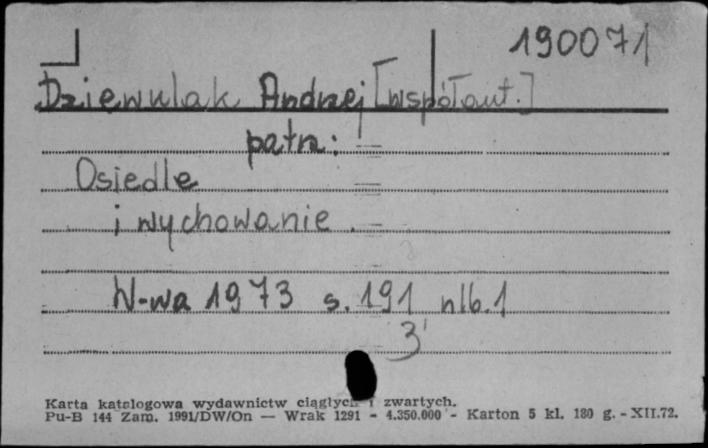 190071
Dziewulak Andrzej [współaut.]
patrz:
Osiedle
i wychowanie.
W-wa 1973 s. 191 nlb. 1
3
Karta katalogowa wydawnictw ciągłych i zwartych.
Pu-B 144 Zam. 1991/DW/On — Wrak 1291 - 4.350.000 - Karton 5 kl. 180 g. - XII.72.